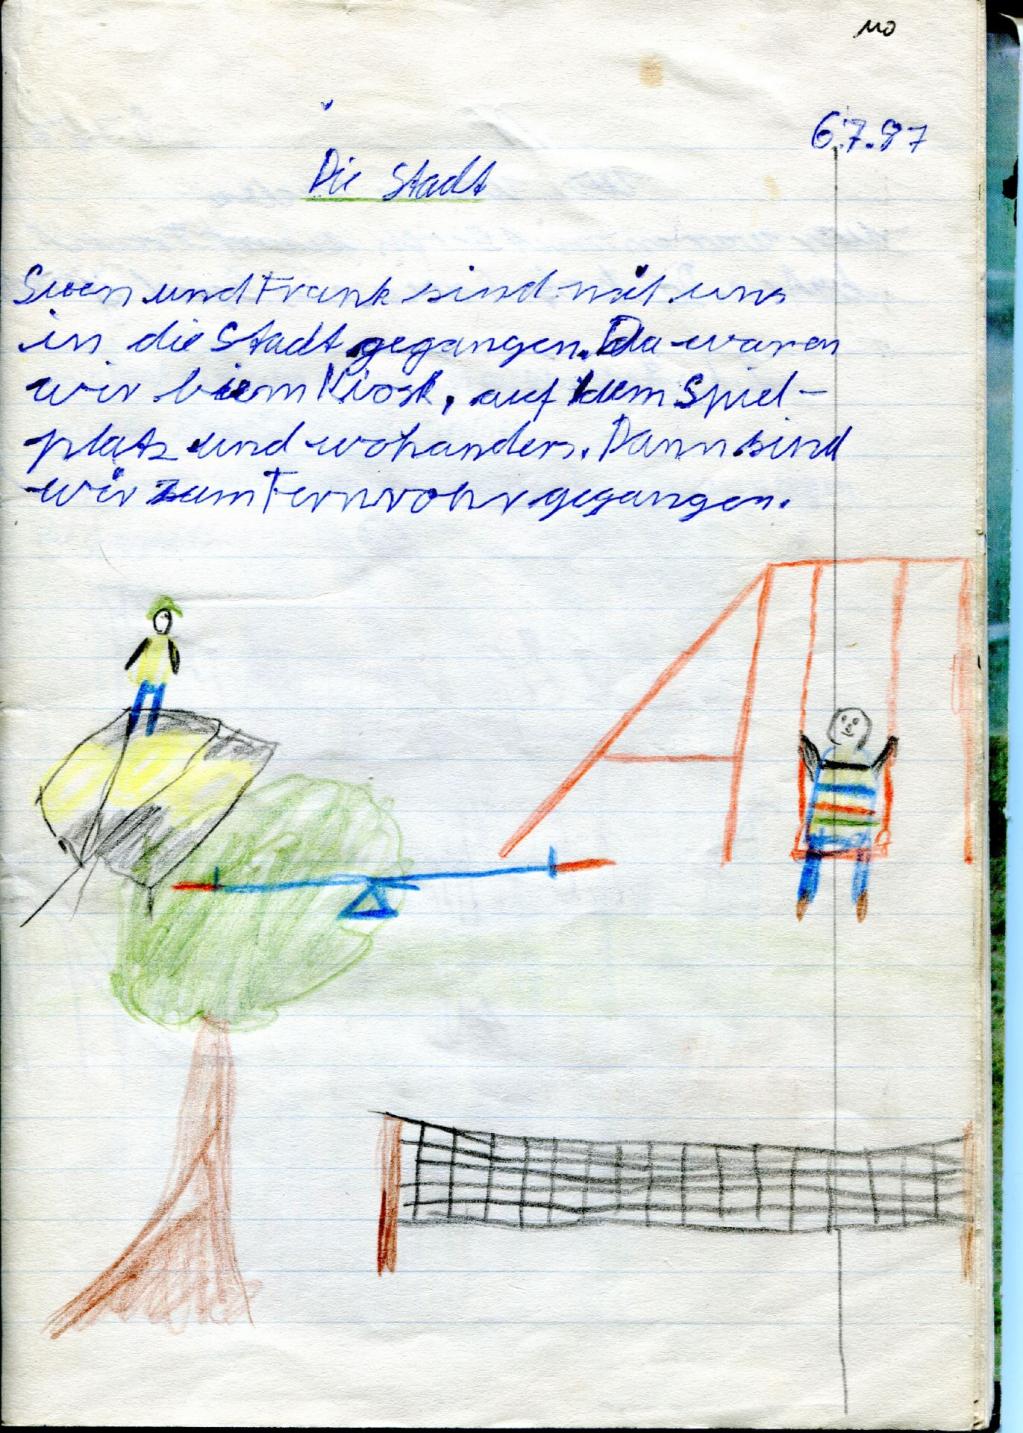 MO
6.7.87
Die Stadt
Swen und Frank sind mit uns
in die Stadt gegangen. Da waren
wir biem Kiosk, auf dem Spiel-
platz und wohanders. Dann sind
wir zum Fernrohr gegangen.